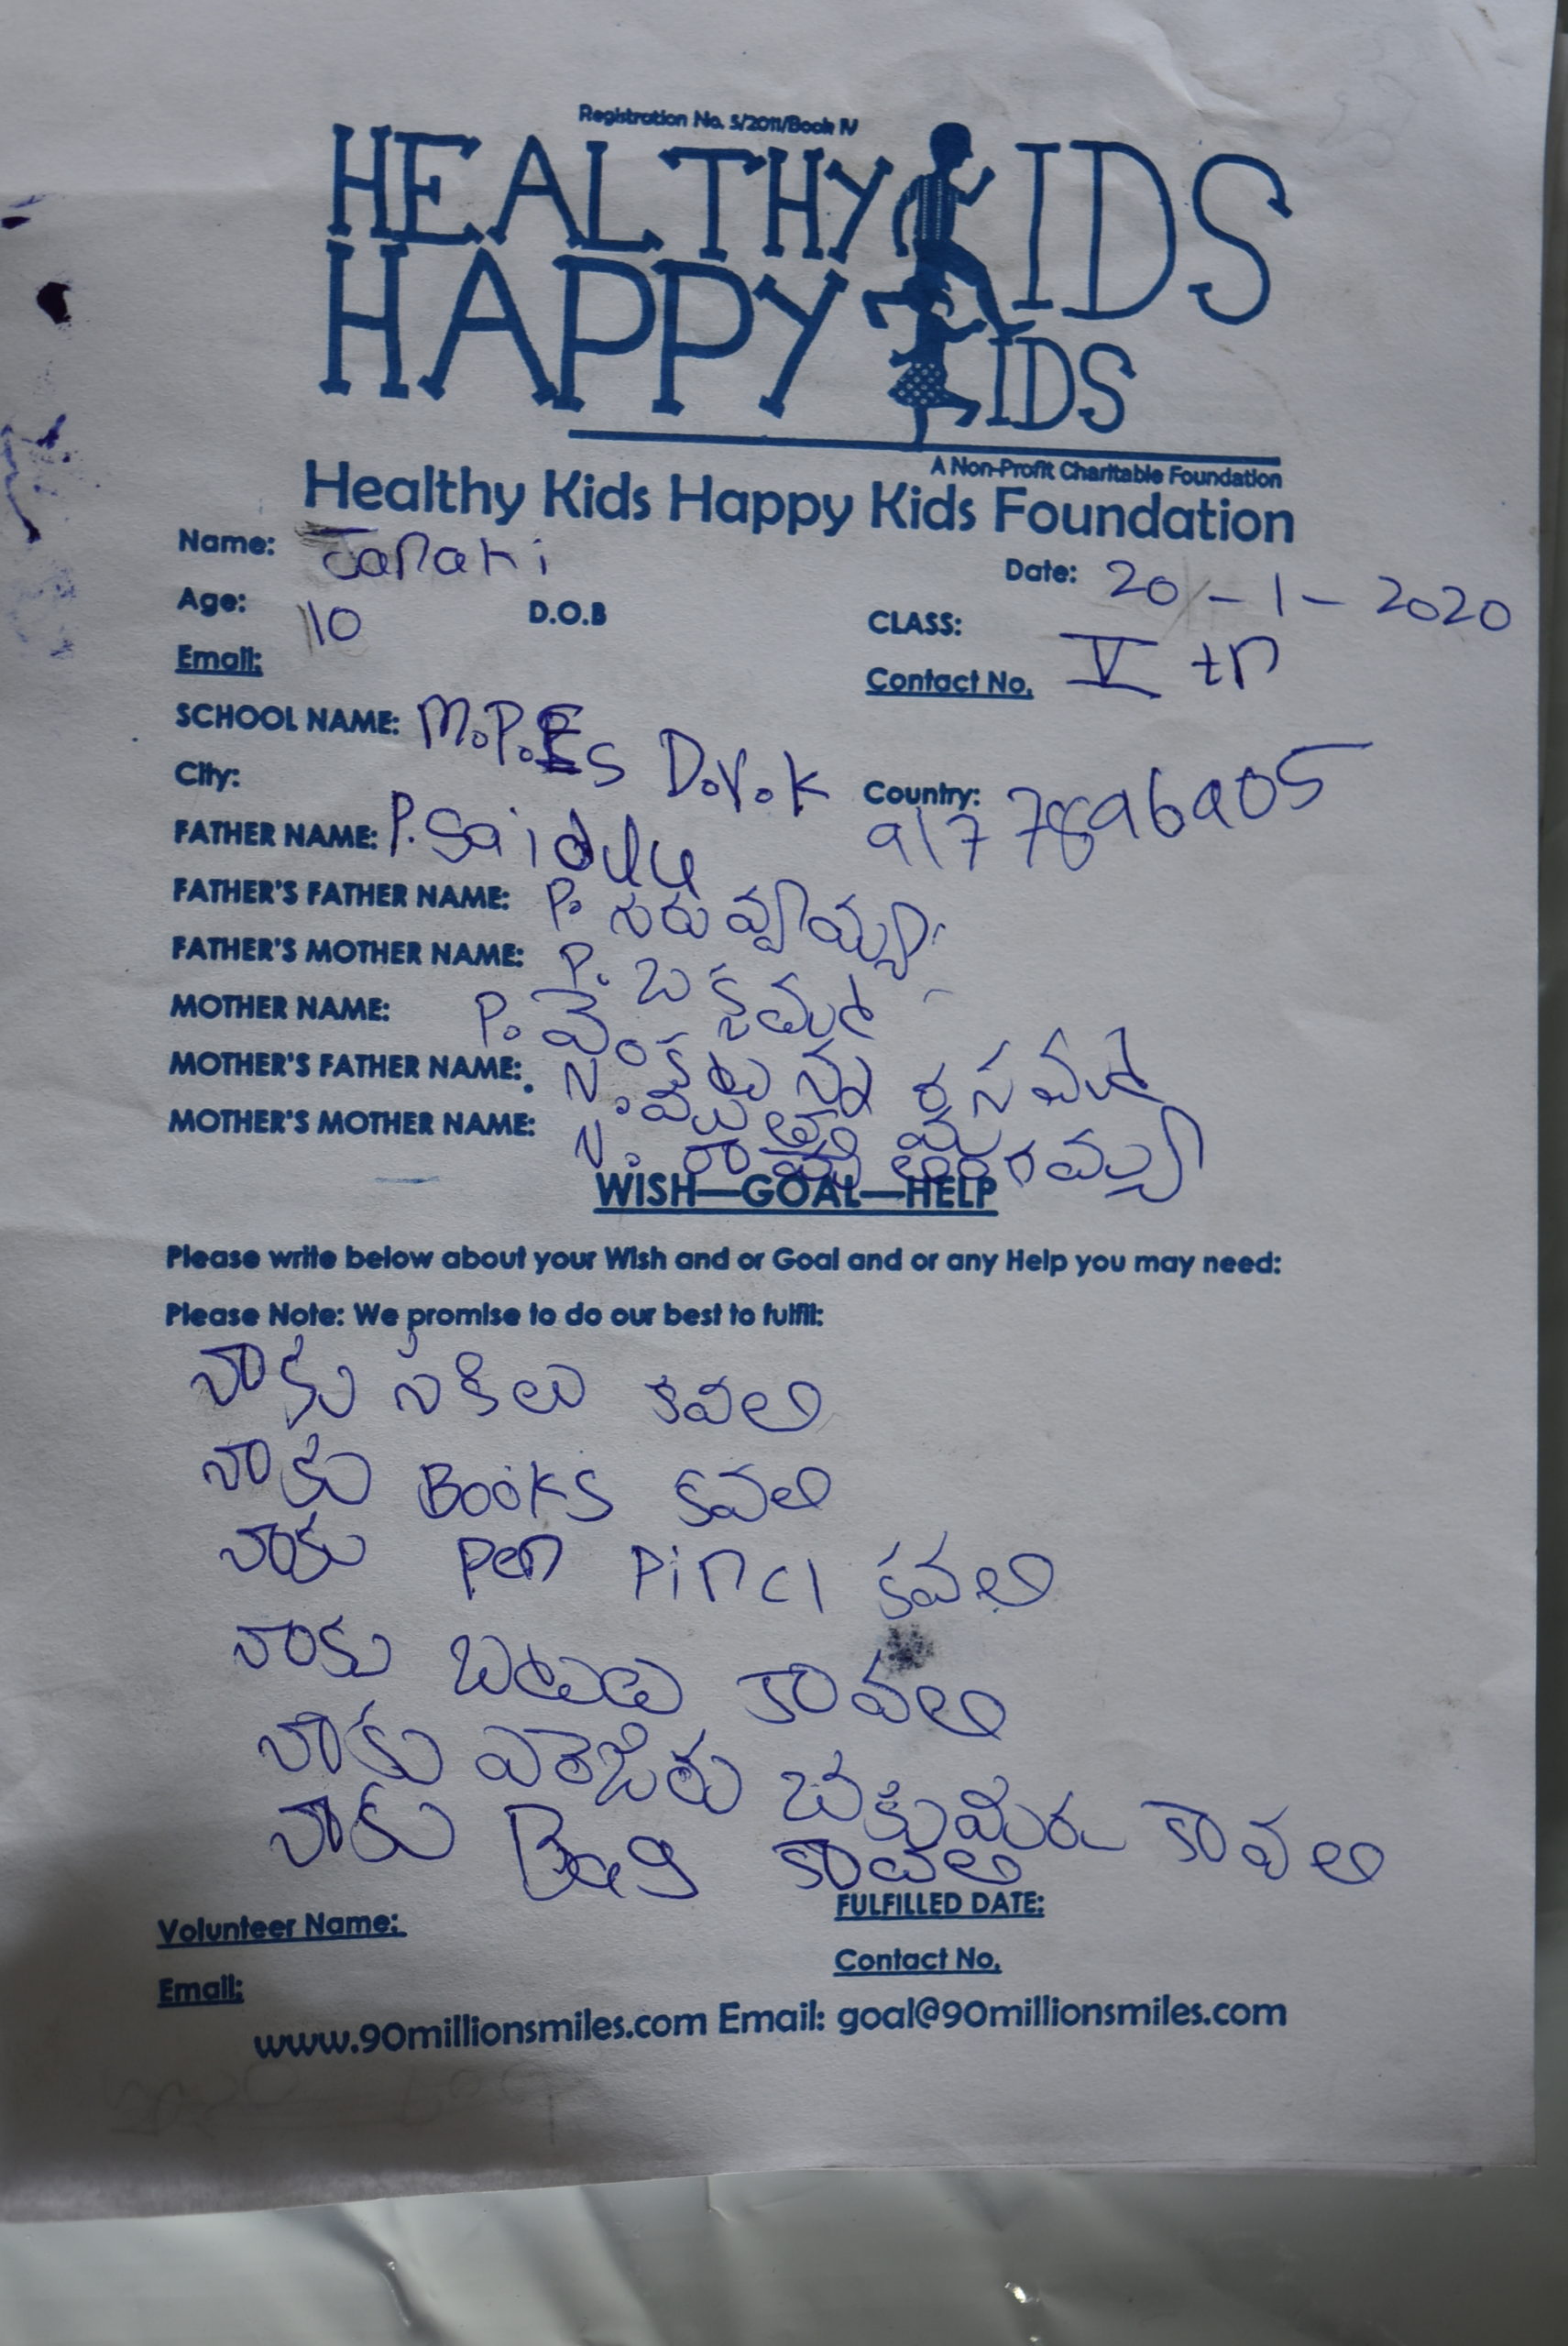 Registration No. 5/2011/Book IV
HEALTHY KIDS
HAPPY KIDS
A Non-Profit Charitable Foundation
Healthy Kids Happy Kids Foundation
Name: Janaki
Date: 20-1-2020
Age: 10 D.O.B CLASS: V th
Email: Contact No.
SCHOOL NAME: M.P.E.S D.V.K
City: Country: 9177896905
FATHER NAME: P. Saidulu
FATHER'S FATHER NAME: P.
FATHER'S MOTHER NAME: P.
MOTHER NAME: P.
MOTHER'S FATHER NAME: N.
MOTHER'S MOTHER NAME: N.
WISH—GOAL—HELP
Please write below about your Wish and or Goal and or any Help you may need:
Please Note: We promise to do our best to fulfil:
నాకు సకిలు కవలి
నాకు Books కవలి
నాకు Pen Pincl కవలి
నాకు బటులు కావలి
నాకు కావలి
నాకు Bag కావలి
FULFILLED DATE:
Volunteer Name:
Contact No.
Email:
www.90millionsmiles.com Email: goal@90millionsmiles.com